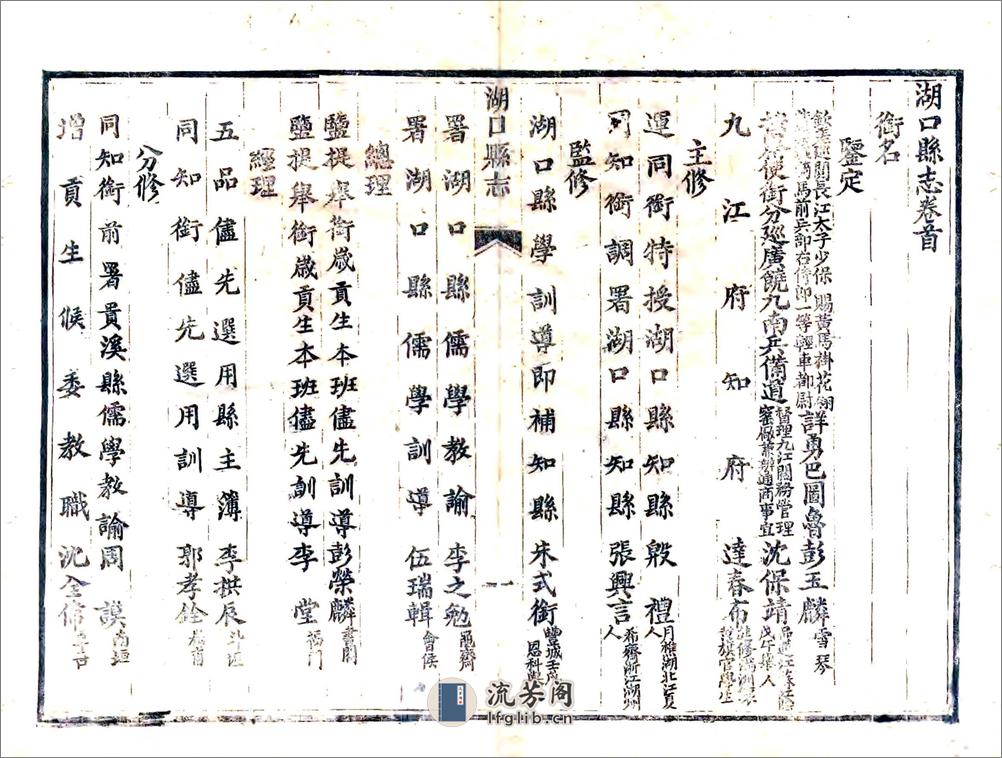 湖口縣志卷首
銜名
鑒定
長江太子少保 賜黃馬褂花翎
馬前兵部右侍郎一等輕車都尉
詳勇巴圖魯彭玉麟雪琴
使銜分巡廣饒九南兵備道督理九江關務管理窰廠兼辦通商事宜沈保靖
九江府知府達春布
主修
運同銜特授湖口縣知縣殷禮
同知銜調署湖口縣知縣張興言希齋浙江湖州人
監修
湖口縣學訓導即補知縣朱式銜豐城壬戌恩科舉
湖口縣志
署湖口縣儒學教諭李之勉
署湖口縣儒學訓導伍瑞輯會侯
總理
鹽提舉銜歲貢生本班儘先訓導彭榮麟
鹽提舉銜歲貢生本班儘先訓導李堂
經理
五品儘先選用縣主簿李拱辰斗垣
同知銜儘先選用訓導郭孝銓
分修
同知銜前署貴溪縣儒學教諭周謨南垣
增貢生候委教職沈全信
流芳阁
lfglib.cn